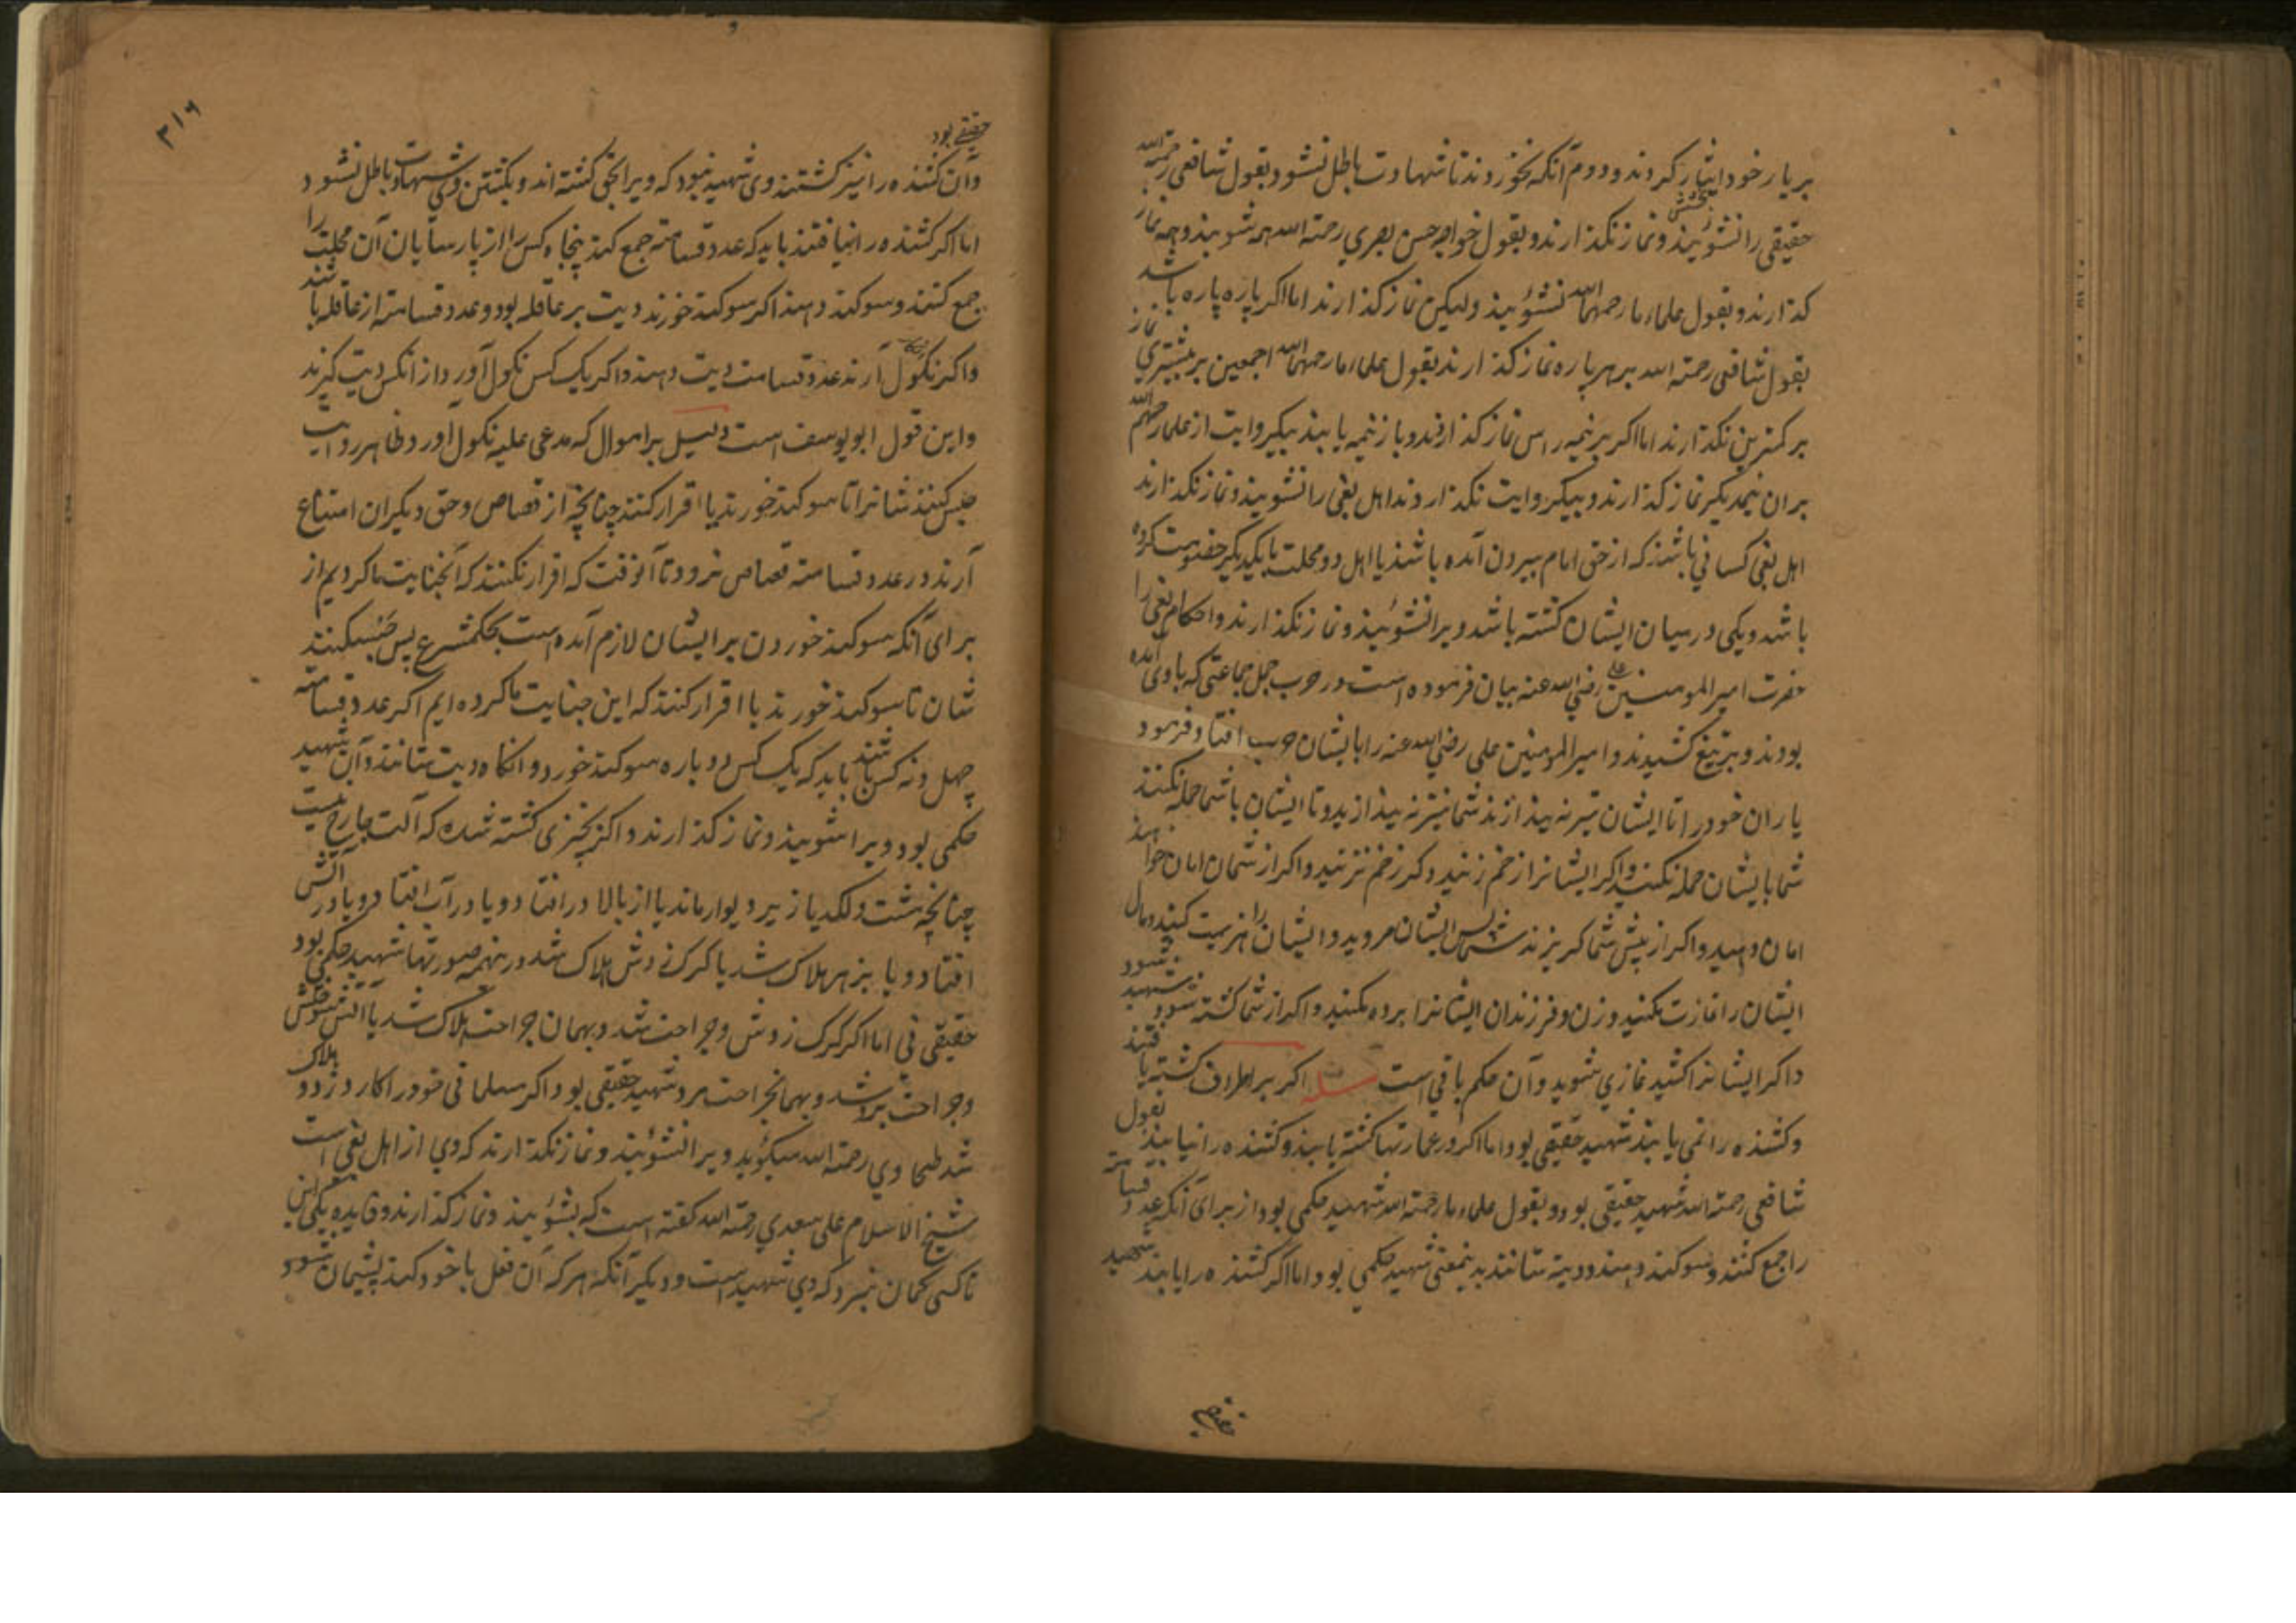 بر یار خود ایثار کردند و دوم آنکه نخوردند تا شهادت باطل نشود و بقول شافعی رحمة الله
حقیقی را نشویند و نماز نگذارند و بقول خواجه حسن بصری رحمة الله همه شویند و همه نماز
گذارند و بقول علماء ما رحمهم الله نشویند ولیکن نماز گذارند اما اکر پاره پاره باشد
بقول شافعی رحمة الله بر هر پاره نماز گذارند بقول علماء ما رحمهم الله اجمعین بر بیشتری نماز
بر کمترین نگذارند اما اکر بر نیمه راس نماز گذاردند و باز نیمه یابند بیکروایت از علماء رحمهم الله
بران نیمه دیگر نماز گذارند و بیکروایت نگذاردند اهل بغی را نشویند و نماز نگذارند
اهل بغی کسانی باشند که از حق امام بیرون آمده باشند یا اهل دو محلت بایکدیگر خصومت کرده
باشند و یکی در میان ایشان کشته باشد ویرا نشویند و نماز نگذارند و احکام بغی را
حضرت امیر المومنین علی رضی الله عنه بیان فرموده است در حرب جمل جماعتی که با وی آمده
بودند و بر تیغ کشیدند و امیر المومنین علی رضی الله عنه را با ایشان حرب افتاد فرمود
یاران خود را تا ایشان تیر نه بیندازند شما نیز نه بیندازید و تا ایشان با شما حمله نکنند
شما با یشان حمله نکنید و اکر ایشانرا زخم زنید دکر زخم نزنید و اکر از شمان امان خواهند
امان دهید و اکر از پیش شما کریزند شما پس ایشان مروید و ایشان را هزیمت کنید و مال
ایشان را غارت مکنید و زن و فرزندان ایشانرا برده مکنید و اکر از شما کشته شود شهید شود
و اکر ایشانرا کشید غازی شوید و آن حکم باقی است مسله اکر بر اطراف کشته یافتند
و کشنده را نمی یابند شهید حقیقی بود و اما اکر در عمارتها کشته یابند و کشنده را نیابند بقول
شافعی رحمة الله شهید حقیقی بود و بقول علماء ما رحمة الله شهید حکمی بود از برای آنکه عدد قسامته
را جمع کنند و سوکند دهند و دیته ستانند بدینمعنی شهید حکمی بود اما اکر کشنده را یابند شهید
حقیقی بود
وآن کشنده را نیز کشتند وی شهید نبود که ویرا بحق کشته اند و بکشتن وی شهادت باطل نشود
اما اکر کشنده را نیافتند باید که عدد قسامته جمع کند پنجاه کس را از پارسایان آن محلت را
جمع کنند و سوکند دهند اکر سوکند خورند دیت بر عاقله بود و عدد قسامته از عاقله باشند
و اکر نکول آرند عدد قسامت دیت دهند و اکر یک کس نکول آورد از انکس دیت کیرند
و این قول ابو یوسف است دلیل بر اموال که مدعی علیه نکول آورد و ظاهر روایت
حبس کنند شانرا تا سوکند خورند یا اقرار کنند چنانچه از قصاص و حق دیکران امتناع
آرند در عدد قسامته قصاص نرود تا آنوقت که اقرار نکنند که آنجنایت ما کردیم از
برای آنکه سوکند خوردن بر ایشان لازم آمده است بحکم شرع پس حبس کنند
شان تا سوکند خورند یا اقرار کنند که این جنایت ما کرده ایم اکر عدد قسامته
چهل و نه کس باشند باید که یک کس دوباره سوکند خورد و انکاه دیت ستانند و آن شهید
حکمی بود ویرا شویند و نماز گذارند و اکر بچیزی کشته شده که آلت جارح نیست
چنانچه مشت و لکد یا زیر دیوار ماند یا از بالا در افتاد و یا در آب افتاد و یا در آتش
افتاد و یا بزهر هلاک شد یا کرک زدش هلاک شد در ینهمه صورتها شهید حکمی بود
حقیقی نی اما اکر کرک زدش وجراحت شد و بهمان جراحت هلاک شد یا آتش سوختش
وجراحت شد و بهمانجراحت مرد شهید حقیقی بود اکر مسلمانی خود را کارد زد و هلاک
شد طحاوی رحمة الله میکوید ویرا نشویند و نماز نگذارند که وی از اهل بغی است
شیخ الاسلام علی سعدی رحمة الله کفته است که بشویند و نماز گذارند و فایده یکی این
تا کسی کمان نبرد که وی شهید است و دیگر آنکه هر که آن فعل با خود کند پشیمان شود